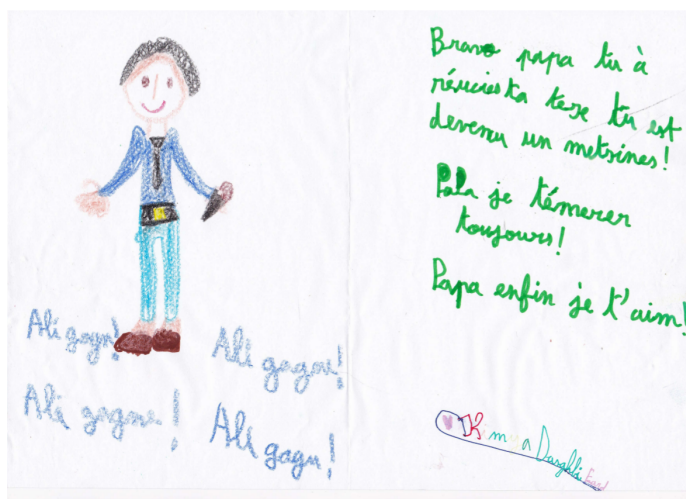 Ali gagne!
Ali gagne!
Ali gagne!
Ali gagne!
Bravo papa tu à
réuciesta teze tu est
devenu un metsines!
Papa je témerer
toujours!
Papa enfin je t'aim!
Kimya